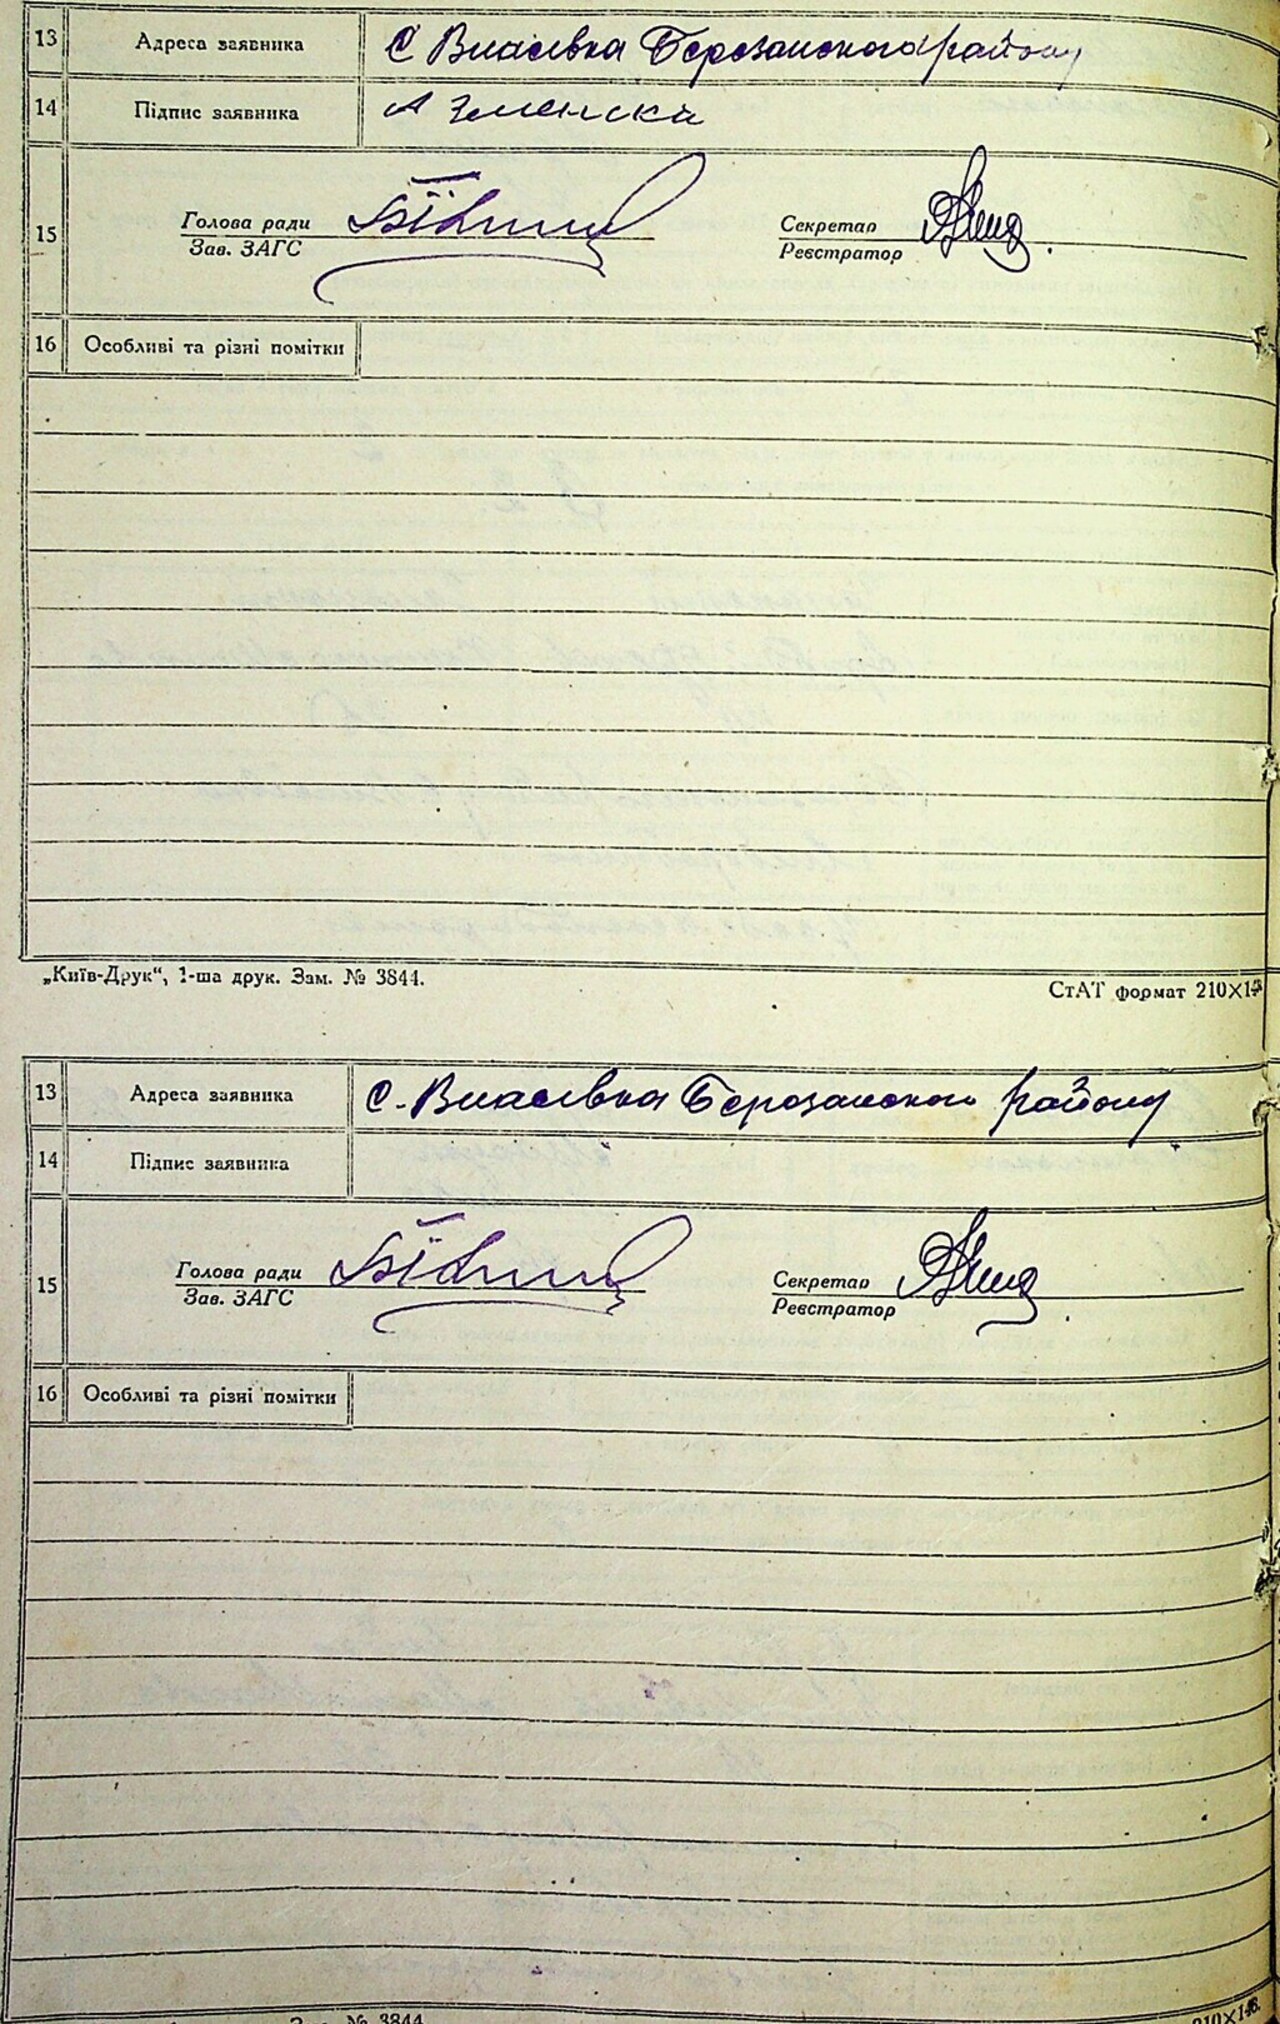 13 Адреса заявника С Власівка Березанського району
14 Підпис заявника А Зеленска
15 Голова ради Секретар
Зав. ЗАГС Реєстратор
16 Особливі та різні помітки
„Київ-Друк“, 1-ша друк. Зам. № 3844. СтАТ формат 210×148
13 Адреса заявника с. Власівка Березанського району
14 Підпис заявника
15 Голова ради Секретар
Зав. ЗАГС Реєстратор
16 Особливі та різні помітки
Зам. № 3844 210×148.